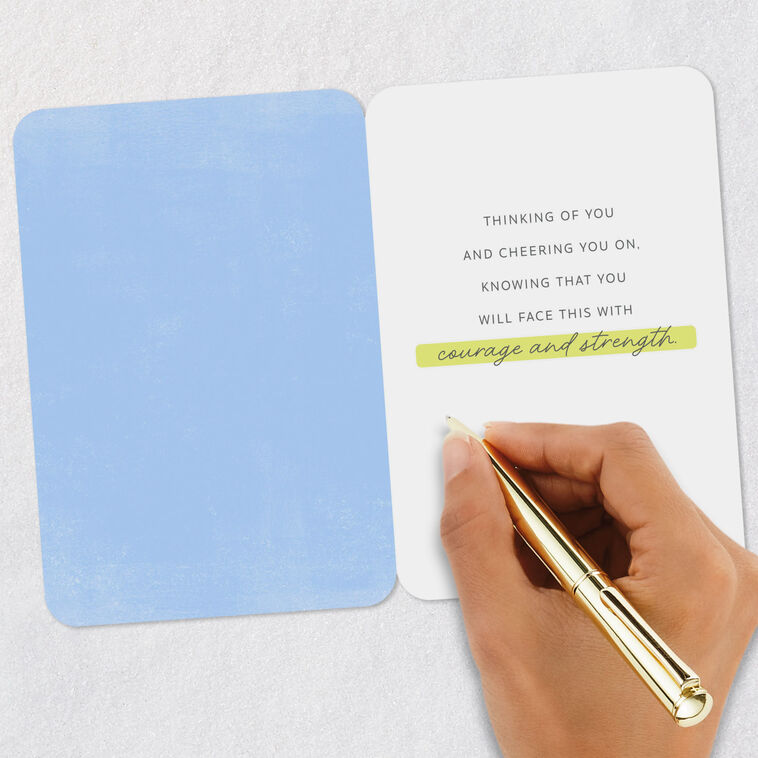 THINKING OF YOU
AND CHEERING YOU ON,
KNOWING THAT YOU
WILL FACE THIS WITH
courage and strength.